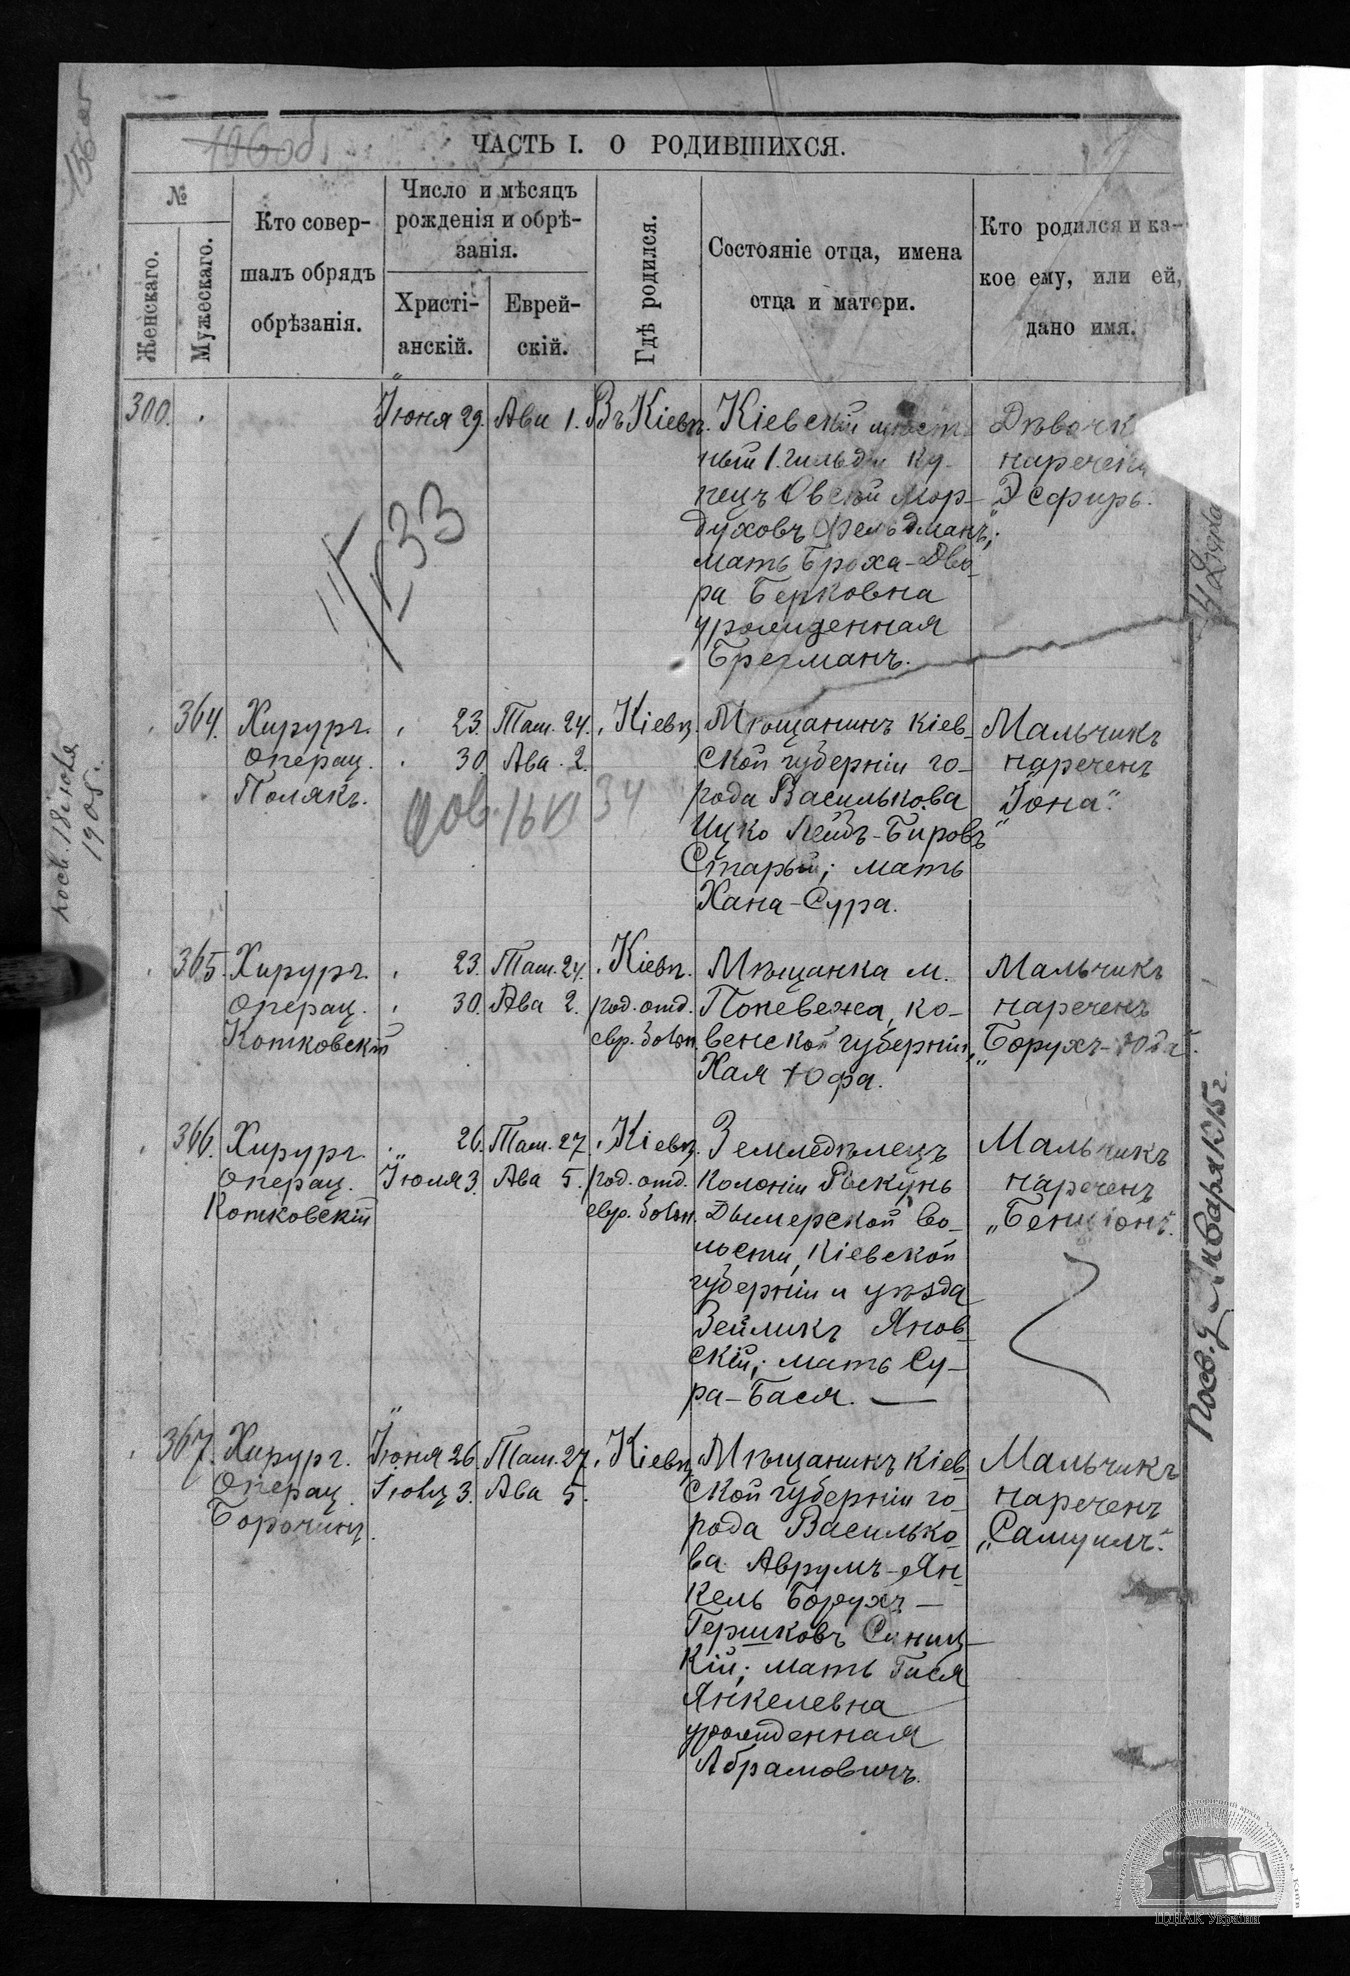 ЧАСТЬ I. О РОДИВШИХСЯ.
№
Женскаго.
Мужескаго.
Кто совер-
шалъ обрядъ
обрѣзанія.
Число и мѣсяцъ
рожденія и обрѣ-
занія.
Христі-
анскій.
Еврей-
скій.
Гдѣ родился.
Состояніе отца, имена
отца и матери.
Кто родился и ка-
кое ему, или ей,
дано имя.
300.
Іюня 29.
Ави 1.
Въ Кіевѣ.
Кіевскій мѣст
ный 1. гильдіи ку-
пецъ Овсей Мор-
духовъ Фельдманъ;
мать Броха-Дво-
ра Берковна
урожденная
Брегманъ.
Дѣвочк
наречена
Эсфирь.
33
364.
Хирург.
Операц.
Полякъ.
23.
30.
Там. 24.
Ава 2.
Кіевѣ.
Мѣщанинъ Кіев-
ской губерніи го-
рода Василькова
Ицко Лейбъ-Бировъ
Старый; мать
Хана-Сура.
Мальчикъ
нареченъ
"Іона".
34
365.
Хирург.
Операц.
Котковскій
23.
30.
Там. 24.
Ава 2.
Кіевѣ.
род. отд.
евр. больн.
Мѣщанка м.
Поневежа, Ко-
венской губерніи,
Хая Юфа.
Мальчикъ
нареченъ
"Борухъ-Юда".
366.
Хирург.
Операц.
Котковскій
26.
Іюля 3.
Там. 27.
Ава 5.
Кіевѣ.
род. отд.
евр. больн.
Земледѣлецъ
колоніи Рыкунь
Дымерской во-
лости, Кіевской
губерніи и уѣзда
Зейликъ Янов-
скій; мать Су-
ра-Бася. —
Мальчикъ
нареченъ
"Бенціонъ".
367.
Хирург.
Операц.
Борочинъ.
Іюня 26.
Іюля 3.
Там. 27.
Ава 5.
Кіевѣ
Мѣщанинъ Кіев-
ской губерніи го-
рода Василько-
ва Аврумъ-Ян-
кель Борухъ-
Гершковъ Синиц-
кій; мать Гися
Янкелевна
урожденная
Абрамовичъ.
Мальчикъ
нареченъ
"Самуилъ".
1905.
ЦДІАК України